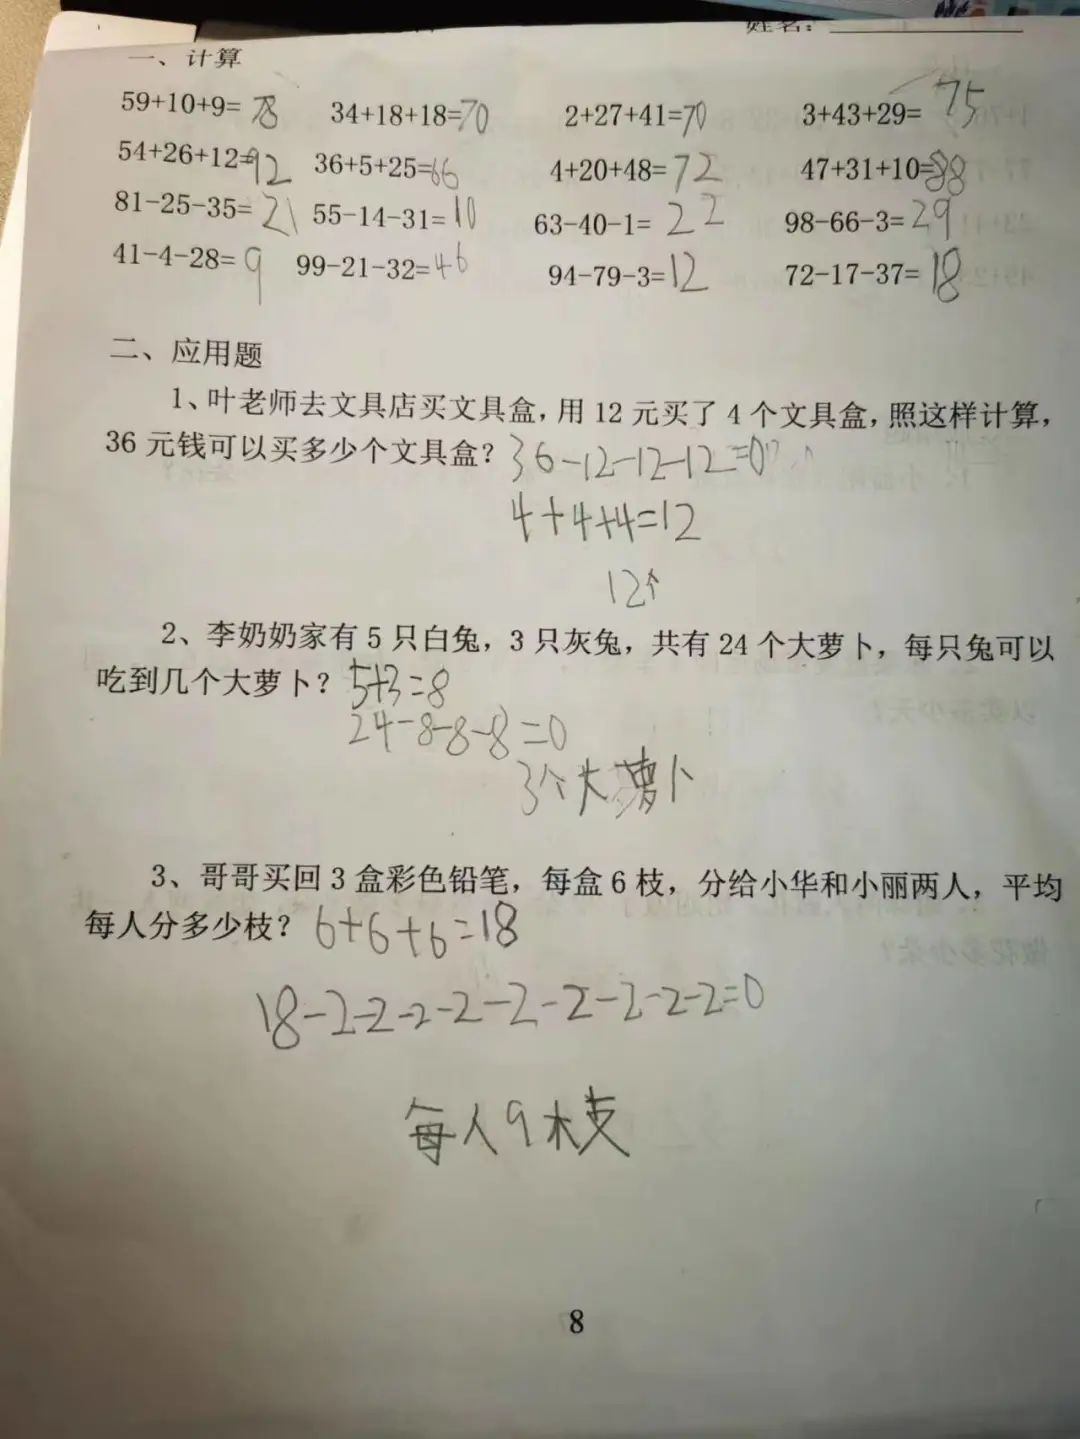 姓名：
一、计算
59+10+9= 78 34+18+18=70 2+27+41=70 3+43+29= 75
54+26+12=92 36+5+25=66 4+20+48=72 47+31+10=88
81-25-35= 21 55-14-31=10 63-40-1= 22 98-66-3=29
41-4-28= 9 99-21-32=46 94-79-3=12 72-17-37= 18
二、应用题
1、叶老师去文具店买文具盒，用 12 元买了 4 个文具盒，照这样计算，
36 元钱可以买多少个文具盒？36-12-12-12=0
4+4+4=12
12个
2、李奶奶家有 5 只白兔，3 只灰兔，共有 24 个大萝卜，每只兔可以
吃到几个大萝卜？5+3=8
24-8-8-8=0
3个大萝卜
3、哥哥买回 3 盒彩色铅笔，每盒 6 枝，分给小华和小丽两人，平均
每人分多少枝？6+6+6=18
18-2-2-2-2-2-2-2-2-2=0
每人9枝
8